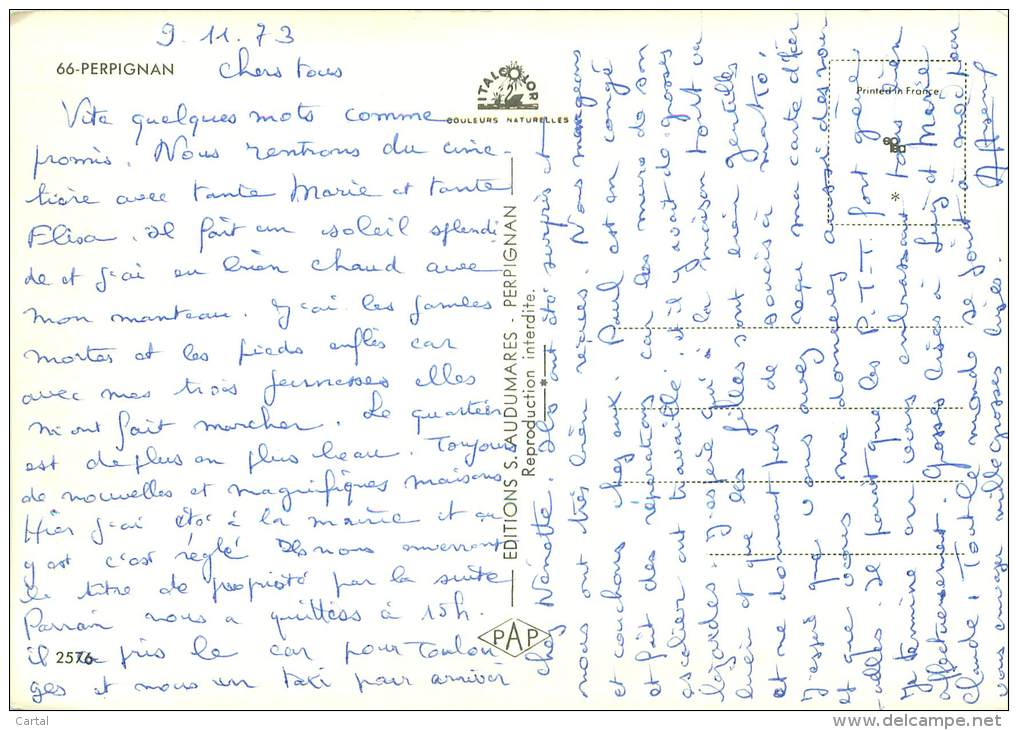 9.11.73
66-PERPIGNAN
Chers tous
Vite quelques mots comme
promis. Nous rentrons du cime-
tière avec tante Marie et tante
Elisa. Il fait un soleil splendi
de et j'ai eu bien chaud avec
mon manteau. J'ai les jambes
mortes et les pieds enflés car
avec mes trois jeunesses elles
m'ont fait marcher. Le quartier
est de plus en plus beau. Toujours
de nouvelles et magnifiques maisons
Hier j'ai été à la mairie et ça
y est c'est réglé Ils nous enverront
le titre de propriété par la suite
Parrain nous a quittés à 15h.
il a pris le car pour Toulou
ges et nous un taxi pour arriver
2576
ITALCOLOR
COULEURS NATURELLES
EDITIONS S. LAUDUMARES - PERPIGNAN
Reproduction interdite.
PAP
Printed in France
chez Nénette. Ils ont été surpris et
nous ont très bien reçues. Nous mangeons
et couchons chez eux. Paul est en congé
et fait des réparations car les murs de son
escalier ont travaillé et il y avait de grosses
lézardes. J'espère qu'à la maison tout va
bien et que les filles sont bien gentilles
et ne donnent pas de soucis à maïté
J'espère que vous avez reçu ma carte d'hier
et que vous me donnerez aussi des nou
velles. Il parait que les P.T.T. font grève
Je termine en vous embrassant * tous bien
affectueusement. Grosses bises à Luzy et Marie
Claude. Tout le monde se joint à moi pour
vous envoyer mille grosses bises.
Cartal
delcampe.net